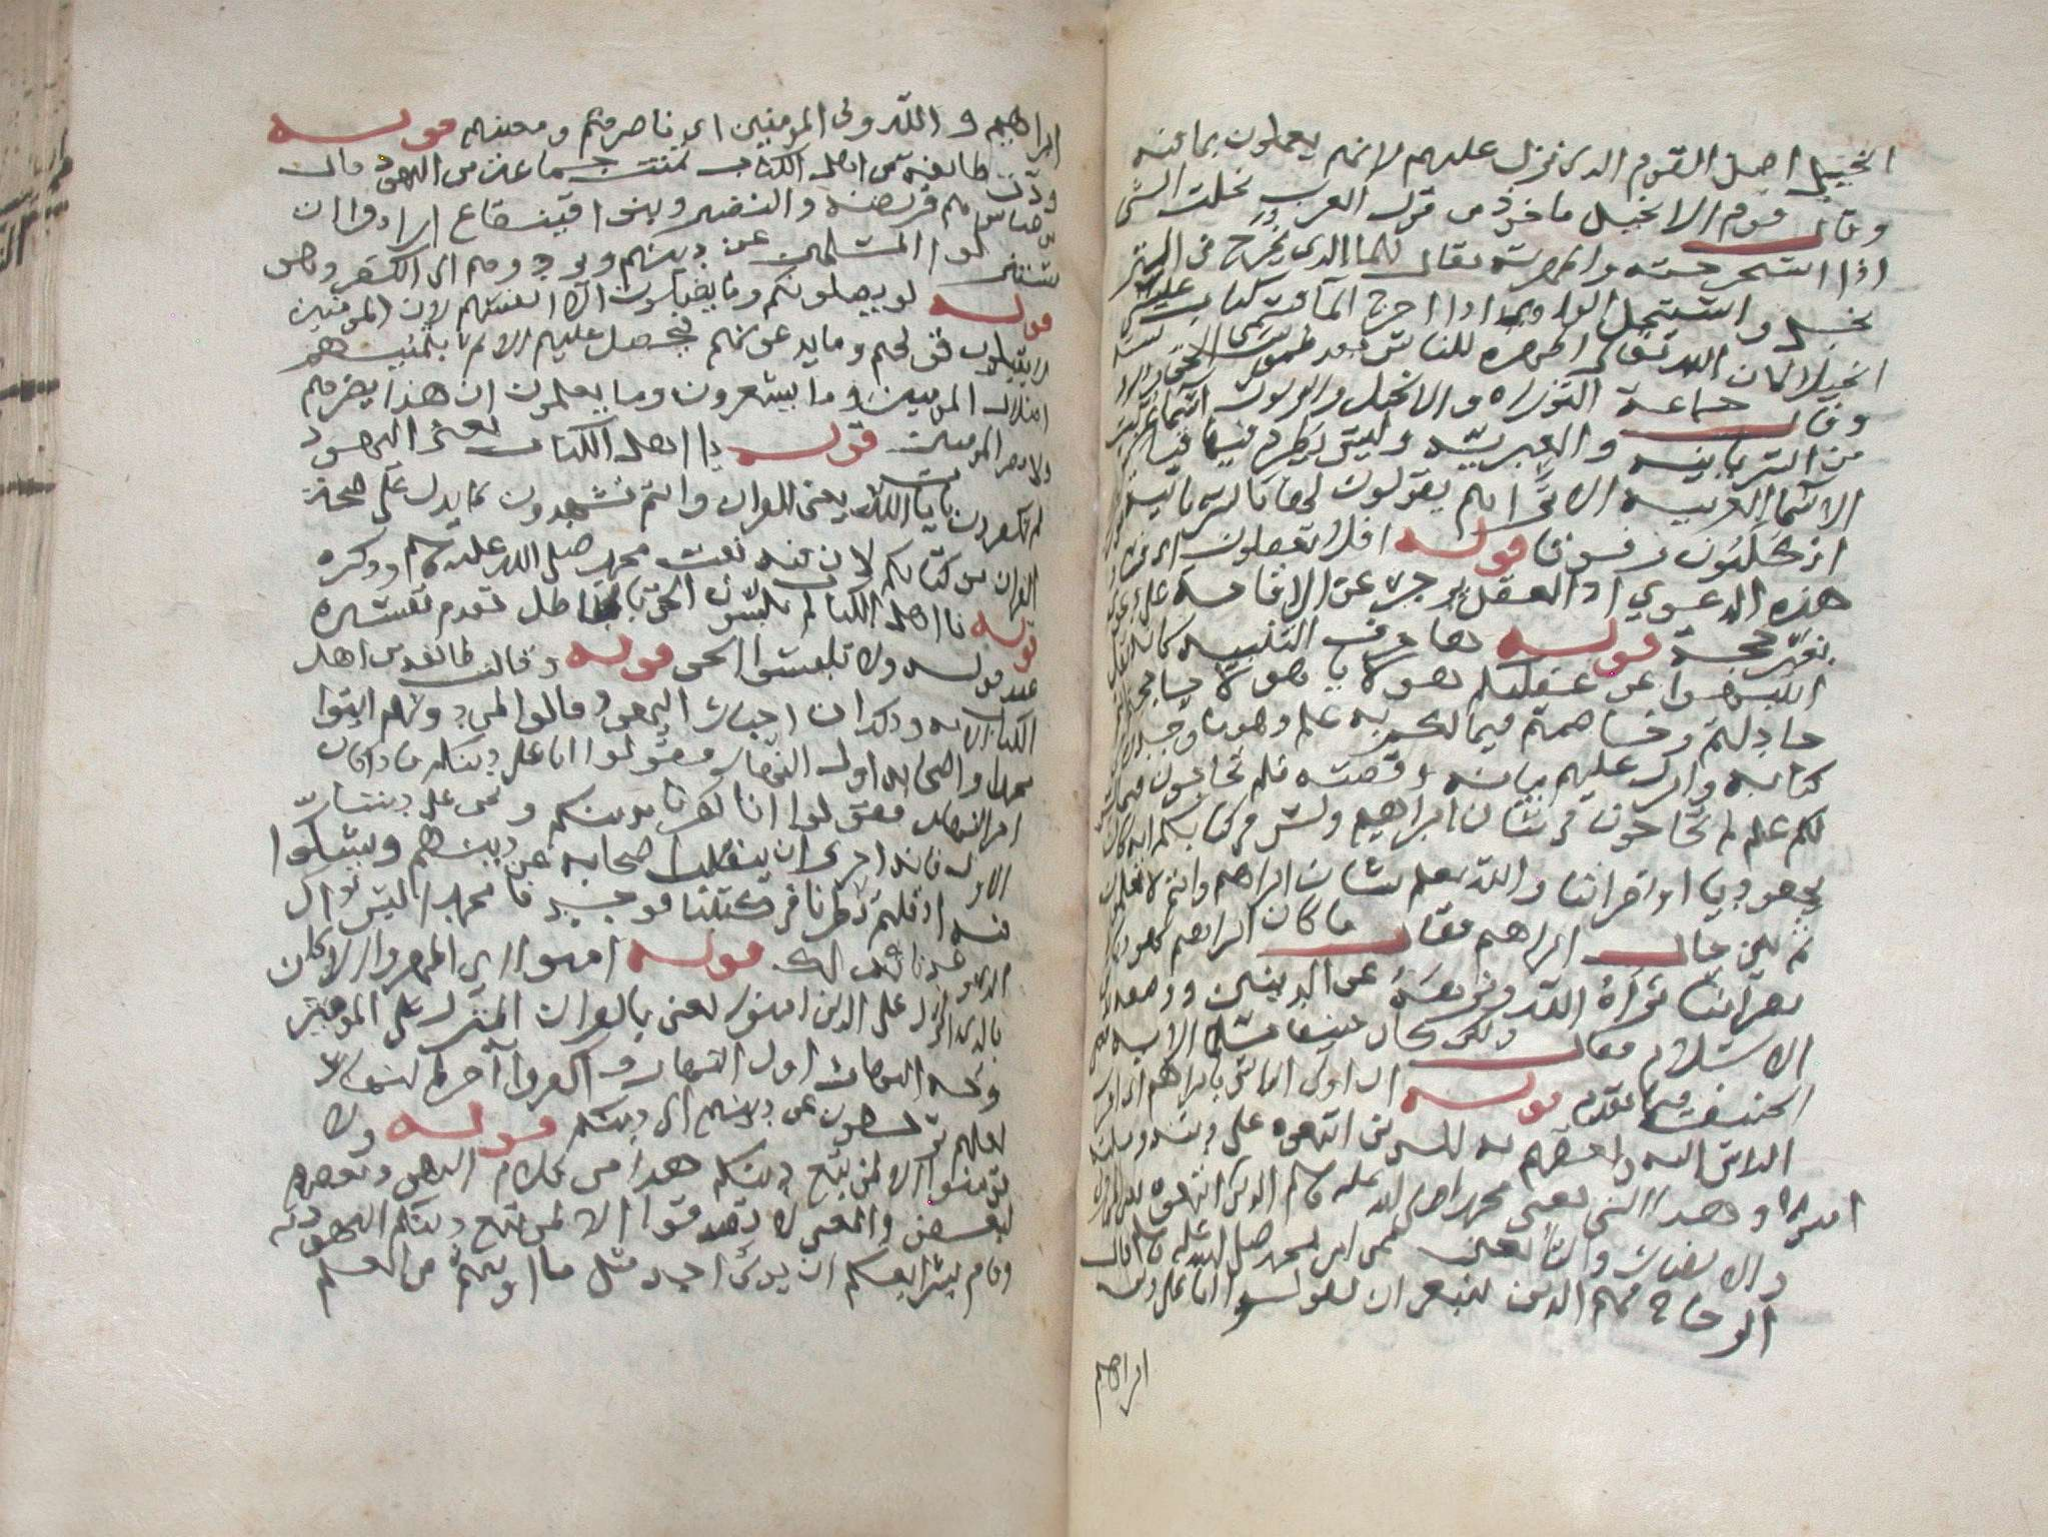 الانجيل اصل القوم الذى نزل عليهم لانهم يعملون بما فيه
وقال قوم الانجيل ماخوذ من قول العرب نجلت الشى
اذا استخرجته واظهرته يقال للما الذى يخرج من البير
نجل و استنجل الوادى اذا اخرج الما
انجيلا لان الله تعالى اظهره للناس بعد طموس الحق
وقال جماعة التوراه والانجيل والزبور اسما عربت
من السريانيه والعبريه وليس يطرد فيها قياس
الاسما العربيه الا ترى انهم يقولون لها بالسريانيه
انكليون قوله افلا تعقلون
هذه الدعوى اذ العقل يزجر عن الاقامة على دعوى
بغير حجة قوله ها حرف التنبيه كانه يقال
انتبهوا عن غفلتكم هولا يا هولا حاججتم
جادلتم وخاصمتم فيما لكم به علم وهو ما وجد
كتابه وانزل عليهم بيانه وقصته فلم تحاجون فيما ليس
لكم به علم لم تحاجون فى شان ابراهيم وليس فى كتابكم انه كان
يهوديا او نصرانيا والله يعلم شان ابراهيم وانتم لا تعلمون
ثم بين حال ابراهيم فقال ما كان ابراهيم يهوديا
نصرانيا براه الله ونزهه عن الدينين ووصفه بدين
الاسلام فقال ولكن كان حنيفا مسلما الايه
الحنيف فيما تقدم قوله ان اولى الناس بابراهيم
الناس اليه واحقهم به للذين اتبعوه على دينه وملته
وهذا النبى يعنى محمدا صلى الله عليه وسلم
والذين امنوا
الزجاج فهم الذين ينبغى ان يقولوا انا على دين
ابراهيم
ابراهيم والله ولى المومنين اى ناصرهم ومعينهم قوله
ودت طائفة من اهل الكتاب تمنت جماعة من اليهود قال
ابن عباس هم قريظة والنضير وبنوا قينقاع ارادوا ان
يستنزلوا المسلمين عن دينهم ويردوهم الى الكفر وهو
قوله لو يضلونكم وما يضلون الا انفسهم لان المومنين
لا يقبلون قولهم وما يدعونهم فيحصل عليهم الاثم بتمنيهم
اضلال المومنين وما يشعرون وما يعلمون ان هذا يضرهم
ولا يضر المومنين قوله يا اهل الكتاب يعنى اليهود
لم تكفرون بايات الله يعنى القران وانتم تشهدون بما يدل على صحة
القران من كتابكم لان فيه نعت محمد صلى الله عليه وسلم وذكره
قوله يا اهل الكتاب لم تلبسون الحق بالباطل تقدم تفسيره
عند قوله ولا تلبسوا الحق قوله وقالت طائفة من اهل
الكتاب الايه وذلك ان احبار اليهود قالوا لمن دونهم ايتوا
محمدا واصحابه اول النهار وقولوا انا على دينكم فاذا كان
اخر النهار فقولوا انا كفرنا بدينكم ونحن على ديننا
الاول فانه احرى ان ينقلب اصحابه عن دينهم ويشكوا
فيه اذا قلتم نظرنا فى كتبنا فوجدنا محمدا ليس بذاك
قوله امنوا
بالذى انزل على الذين امنوا يعنى بالقران المنزل على المومنين
وجه النهار اول النهار واكفروا اخره
لعلهم يرجعون عن دينهم الى دينكم قوله ولا
تومنوا الا لمن تبع دينكم هذا من كلام اليهود بعضهم
لبعض والمعنى لا تصدقوا الا لمن تبع دينكم اليهودية
ان يوتى احد مثل ما اوتيتم من العلم